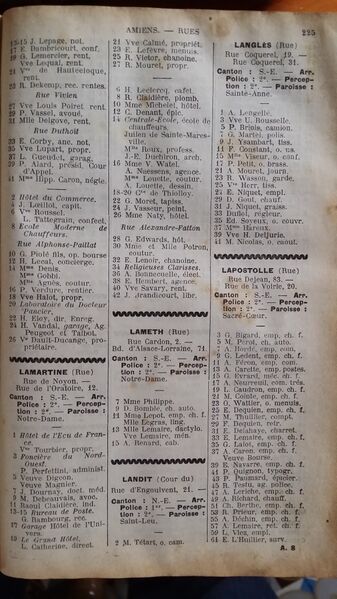 AMIENS. — RUES
225
13-15 J. Lepage, not.
17 E. Dambricourt, conf.
19 G. Lemercier, rent.
Vve Lequai, rent.
21 Vte de Hautecloque, rent.
23 R. Dekcorp, rec. rentes.
Rue Vivien
27 Vve Louis Poiret, rent.
29 P. Vassel, avoué
31 Mlle Delgove, rent.
Rue Duthoit
33 E. Corby, anc. not.
35 Vve Lupart, propr.
37 L. Gueudel, garag.
39 P. Alard, présid. Cour d'Appel.
41 Mme Hipp. Caron, négte.
2 Hôtel du Commerce.
4 J. Lœillot, capit.
6 Vve Roussel.
L. Tattegrain, confect.
8 École Moderne de Chauffeurs.
Rue Alphonse-Paillat
10 G. Piolé fils, op. bourse
12 H. Lecat, concierge.
14 Mme Denis.
Mme Gobbl.
Mme Agnès, coutur.
16 P. Verdure, rentier.
18 Vve Halot, propr.
20 Laboratoire du Docteur Pancier.
22 H. Eloy, dir. Enreg.
24 H. Vandal, garage, Ag. Peugeot et Talbot.
26 Vve Dault-Ducange, propriétaire.
LAMARTINE (Rue)
Rue de Noyon.
Rue de l'Oratoire, 12.
Canton : S.-E. — Arr. Police : 2e. — Perception : 2e. — Paroisse : Notre-Dame.
1 Hôtel de l'Ecu de France.
Vve Tourbier, propr.
3 Foncière du Nord-Ouest.
P. Perfettini, administ.
5 Veuve Digeon.
Veuve Magnier.
7 J. Dournay, doct. méd.
9 M. Debeauvais, avoc.
11 Raoul Claidière, ind.
13-15 Bureau de Poste.
G. Rambourg, rec.
17 Garage Hôtel de l'Univers.
19 Le Grand Hôtel.
L. Catherine, direct.
21 Vve Calmé, propriét.
23 E. Lefèvre, menuis.
25 R. Victor, chanoine.
27 R. Mouret, propr.
6 H. Leclercq, cafet.
8 R. Claidière, plomb.
10 Mme Michelet, hôtel.
12 C. Denant, épic.
14 Centrale-École, école de chauffeurs.
Julien de Sainte-Maresville.
Mme Roux, profess.
J.-E. Duchiron, arch.
16 Mme V. Watel.
A. Naessens, agence.
Mme Louette, coutur.
A. Louette, dessin.
18-20 Cte de Thielloy.
22 G. Moret, tapiss.
24 J. Vasseur, peint.
26 Mme Naty, hôtel.
Rue Alexandre-Fatton
28 G. Edwards, hôt.
30 Mme et Mlle Potron, coutur.
32 E. Lenoir, chanoine.
34 Religieuses Clarisses.
36 A. Bonnecuelle, décr.
38 E. Hembert, agence.
40 Vve Savary, rent.
42 J. Grandicourt, libr.
LAMETH (Rue)
Rue Cardon, 2. —
Bd. d'Alsace-Lorraine, 71.
Canton : S.-E. — Arr. Police : 2e. — Perception : 2e. — Paroisse : Notre-Dame.
7 Mme Philippe.
9 D. Bomble, ch. auto
11 Mme Lepot, emp. ch. f.
Mlle Legras, ling.
13 Mlle Lemaire, dactylo.
Vve Lemaire, mén.
15 A. Renard, cab.
LANDIT (Cour du)
Rue d'Engoulvent, 21. —
Canton : S.-E. — Arr. Police : 1re. — Perception : 2e. — Paroisse : Saint-Leu.
2 M. Tétart, o. cam.
LANGLÈS (Rue)
Rue Coquerel, 19. —
Rue Coquerel, 31.
Canton : S.-E. — Arr. Police : 2e. — Perception : 2e. — Paroisse : Sainte-Anne.
1 A. Lengellé.
3 Vve U. Rousselle.
5 P. Brigis, camion.
7 G. Martel, polis
9 J. Ysambart, tiss.
11 F. Constant, o. cam.
15 Mme Viseur, o. conf.
17 P. Petit, o. brass.
21 A. Mouret, journ.
23 R. Wasson, garde.
25 Vve Herr, tiss.
27 E. Niquet, empl.
29 D. Gout, chauf.
31 J. Niquet, graiss.
33 Duflot, régleur.
35 Ed. Soyeux, o. couvr.
37 Mme Hareux.
39 Vve H. Deljurie.
41 M. Nicolas, o. caout.
LAPOSTOLLE (Rue)
Rue Dejean, 83. —
Rue de la Voirie, 20.
Canton : S.-E. — Arr. Police : 2e. — Perception : 2e. — Paroisse : Sacré-Cœur.
3 G. Bigard, emp. ch. f.
5 M. Pérot, ch. auto.
7 A. Horté, emp. com.
9 G. Ledent, emp. ch. f.
11 A. Féron, emp. ch. f.
13 A. Carette, emp. postes.
15 G. Evrard, méc. ch. f.
17 A. Neurreuil, com. trés.
19 L. Caudron, emp. ch. f.
21 M. Cointe, emp. ch. f.
23 G. Wattier, o. menuis.
25 E. Dequien, emp. ch. f.
27 M. Thuillier, compt.
29 P. Dequien, retr.
31 E. Delahaye, charret.
33 E. Lemaire, emp. ch. f.
35 G. Lalot, emp. ch. f.
37 A. Caron, emp. ch. f.
Veuve Bourse.
39 E. Navarre, emp. ch. f.
41 P. Quignon, typogr.
43 P. Paumard, épicier.
45 R. Yestd, ag. police.
47 A. Leriche, emp. ch. f.
49 A. Richard, chauff.
51 Ch. Berthe, emp. ch. f.
53 R. Prieur, emp. ch. f.
55 A. Déchin, emp. ch. f.
57 A. Lesens, emp. ch. f.
59 L. Vicq, empl.
61 E. L'huillier, surv.
A. 8